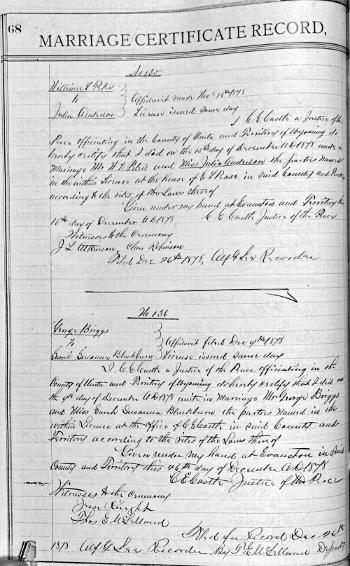 68
MARRIAGE CERTIFICATE RECORD,
No 135
William
to
Julia Anderson
Affidavit made Nov 16th 1878
License issued same day
I C E Castle a Justice of the
Peace officiating in the County of Uinta and Territory of Wyoming do
hereby certify that I did on the 10th day of December A D 1878 unite in
Marriage Mr and Miss Julia Anderson the parties named
in the within License at the house of in said County and
according to the rites of the Laws thereof
Given under my hand at Evanston and Territory this
10th day of December A D 1878
C E Castle Justice of the Peace
Witnesses to the ceremony
J L Atkinson,
Filed Dec 26th 1878, Recorder
No 136
George Briggs
to
Sarah Susanna Blackburn
Affidavit filed Dec 9th 1878
License issued same day
I, C E Castle a Justice of the Peace officiating in the
County of Uinta and Territory of Wyoming do hereby certify that I did on
the 9th day of December A D 1878 unite in Marriage Mr George Briggs
and Miss Sarah Susanna Blackburn the parties named in the
within License at the office of C E Castle in said County and
Territory according to the rites of the Laws thereof
Given under my hand at Evanston in said
County and Territory this 26th day of December A D 1878
C E Castle Justice of the Peace
Witnesses to the ceremony
Knight
Thos
Filed for Record Dec 26th
1878 Recorder By Deputy